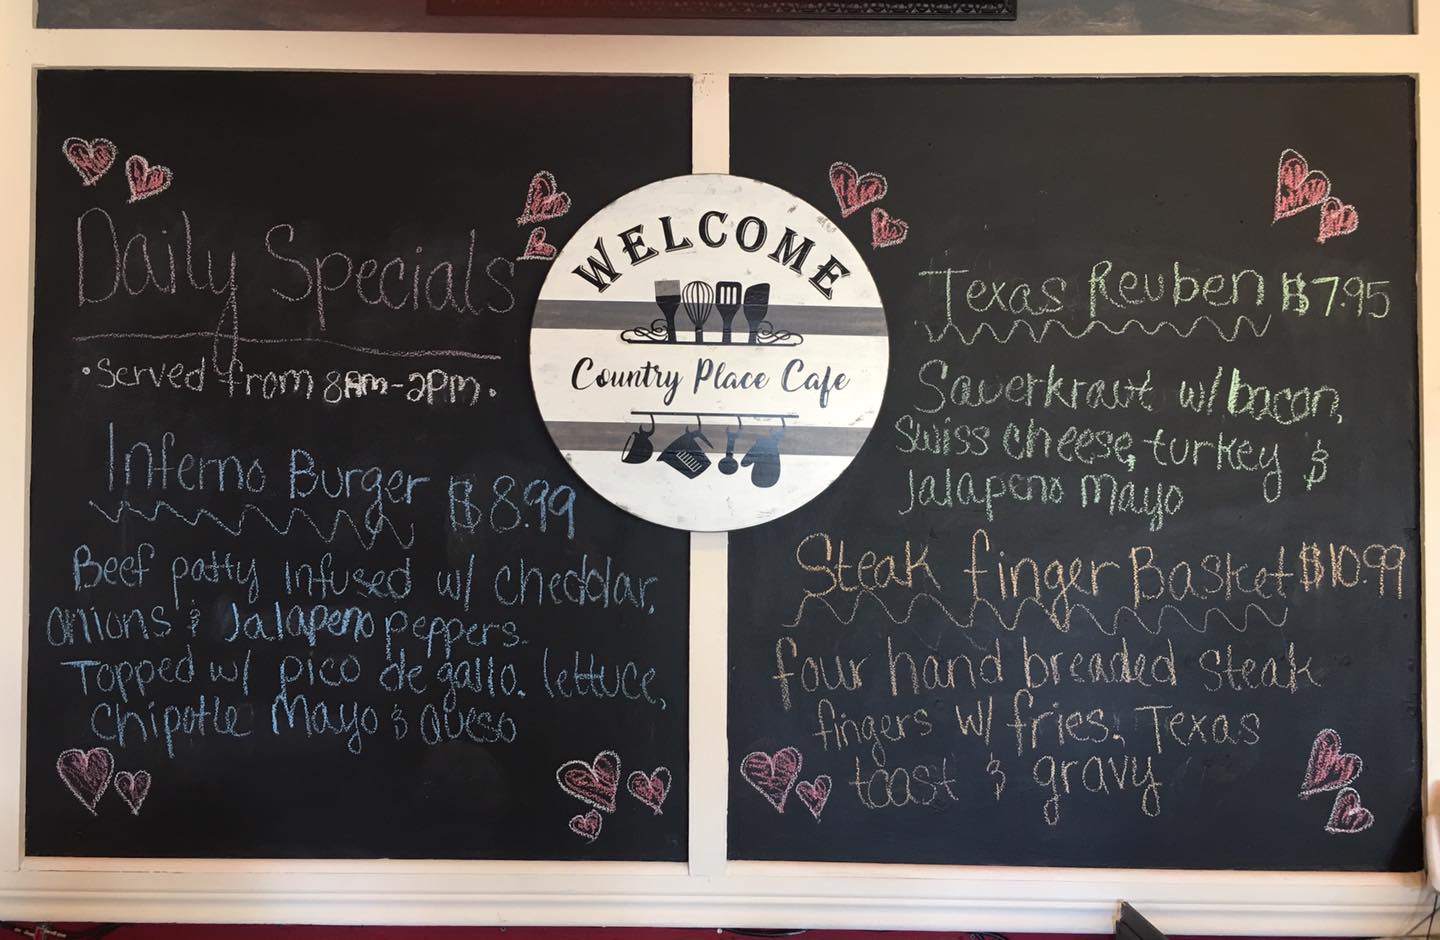 Daily Specials
•Served from 8AM-2PM•
Inferno Burger $8.99
Beef patty infused w/ cheddar,
onions & Jalapeno peppers.
Topped w/ pico de gallo, lettuce,
Chipotle Mayo & Queso
WELCOME
Country Place Cafe
Texas Reuben $7.95
Sauerkraut w/ bacon,
Swiss cheese, turkey &
Jalapeno Mayo
Steak finger Basket $10.99
four hand breaded steak
fingers w/ fries, Texas
toast & gravy